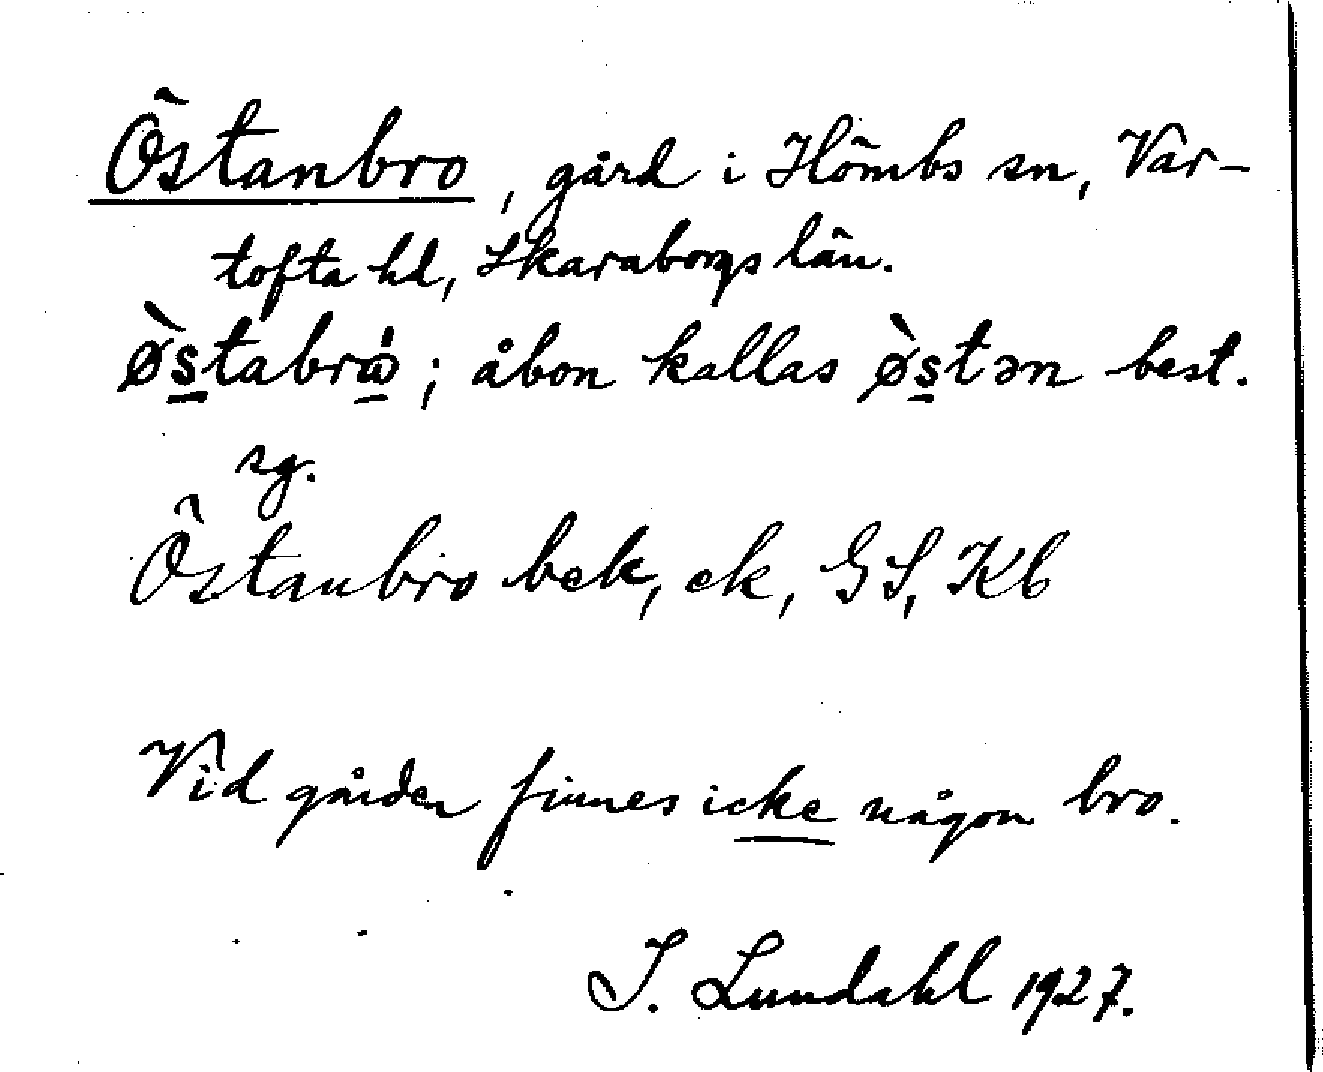 Östanbro, gård i Hömbs sn, Var-
tofta hd, Skaraborgs län.
ø̀s̲tabrώ̲; åbon kallas ø̀s̲tən best.
sg.
Östanbro bek, ek, GS, Kb
Vid gården finnes icke någon bro.
I. Lundahl 1927.